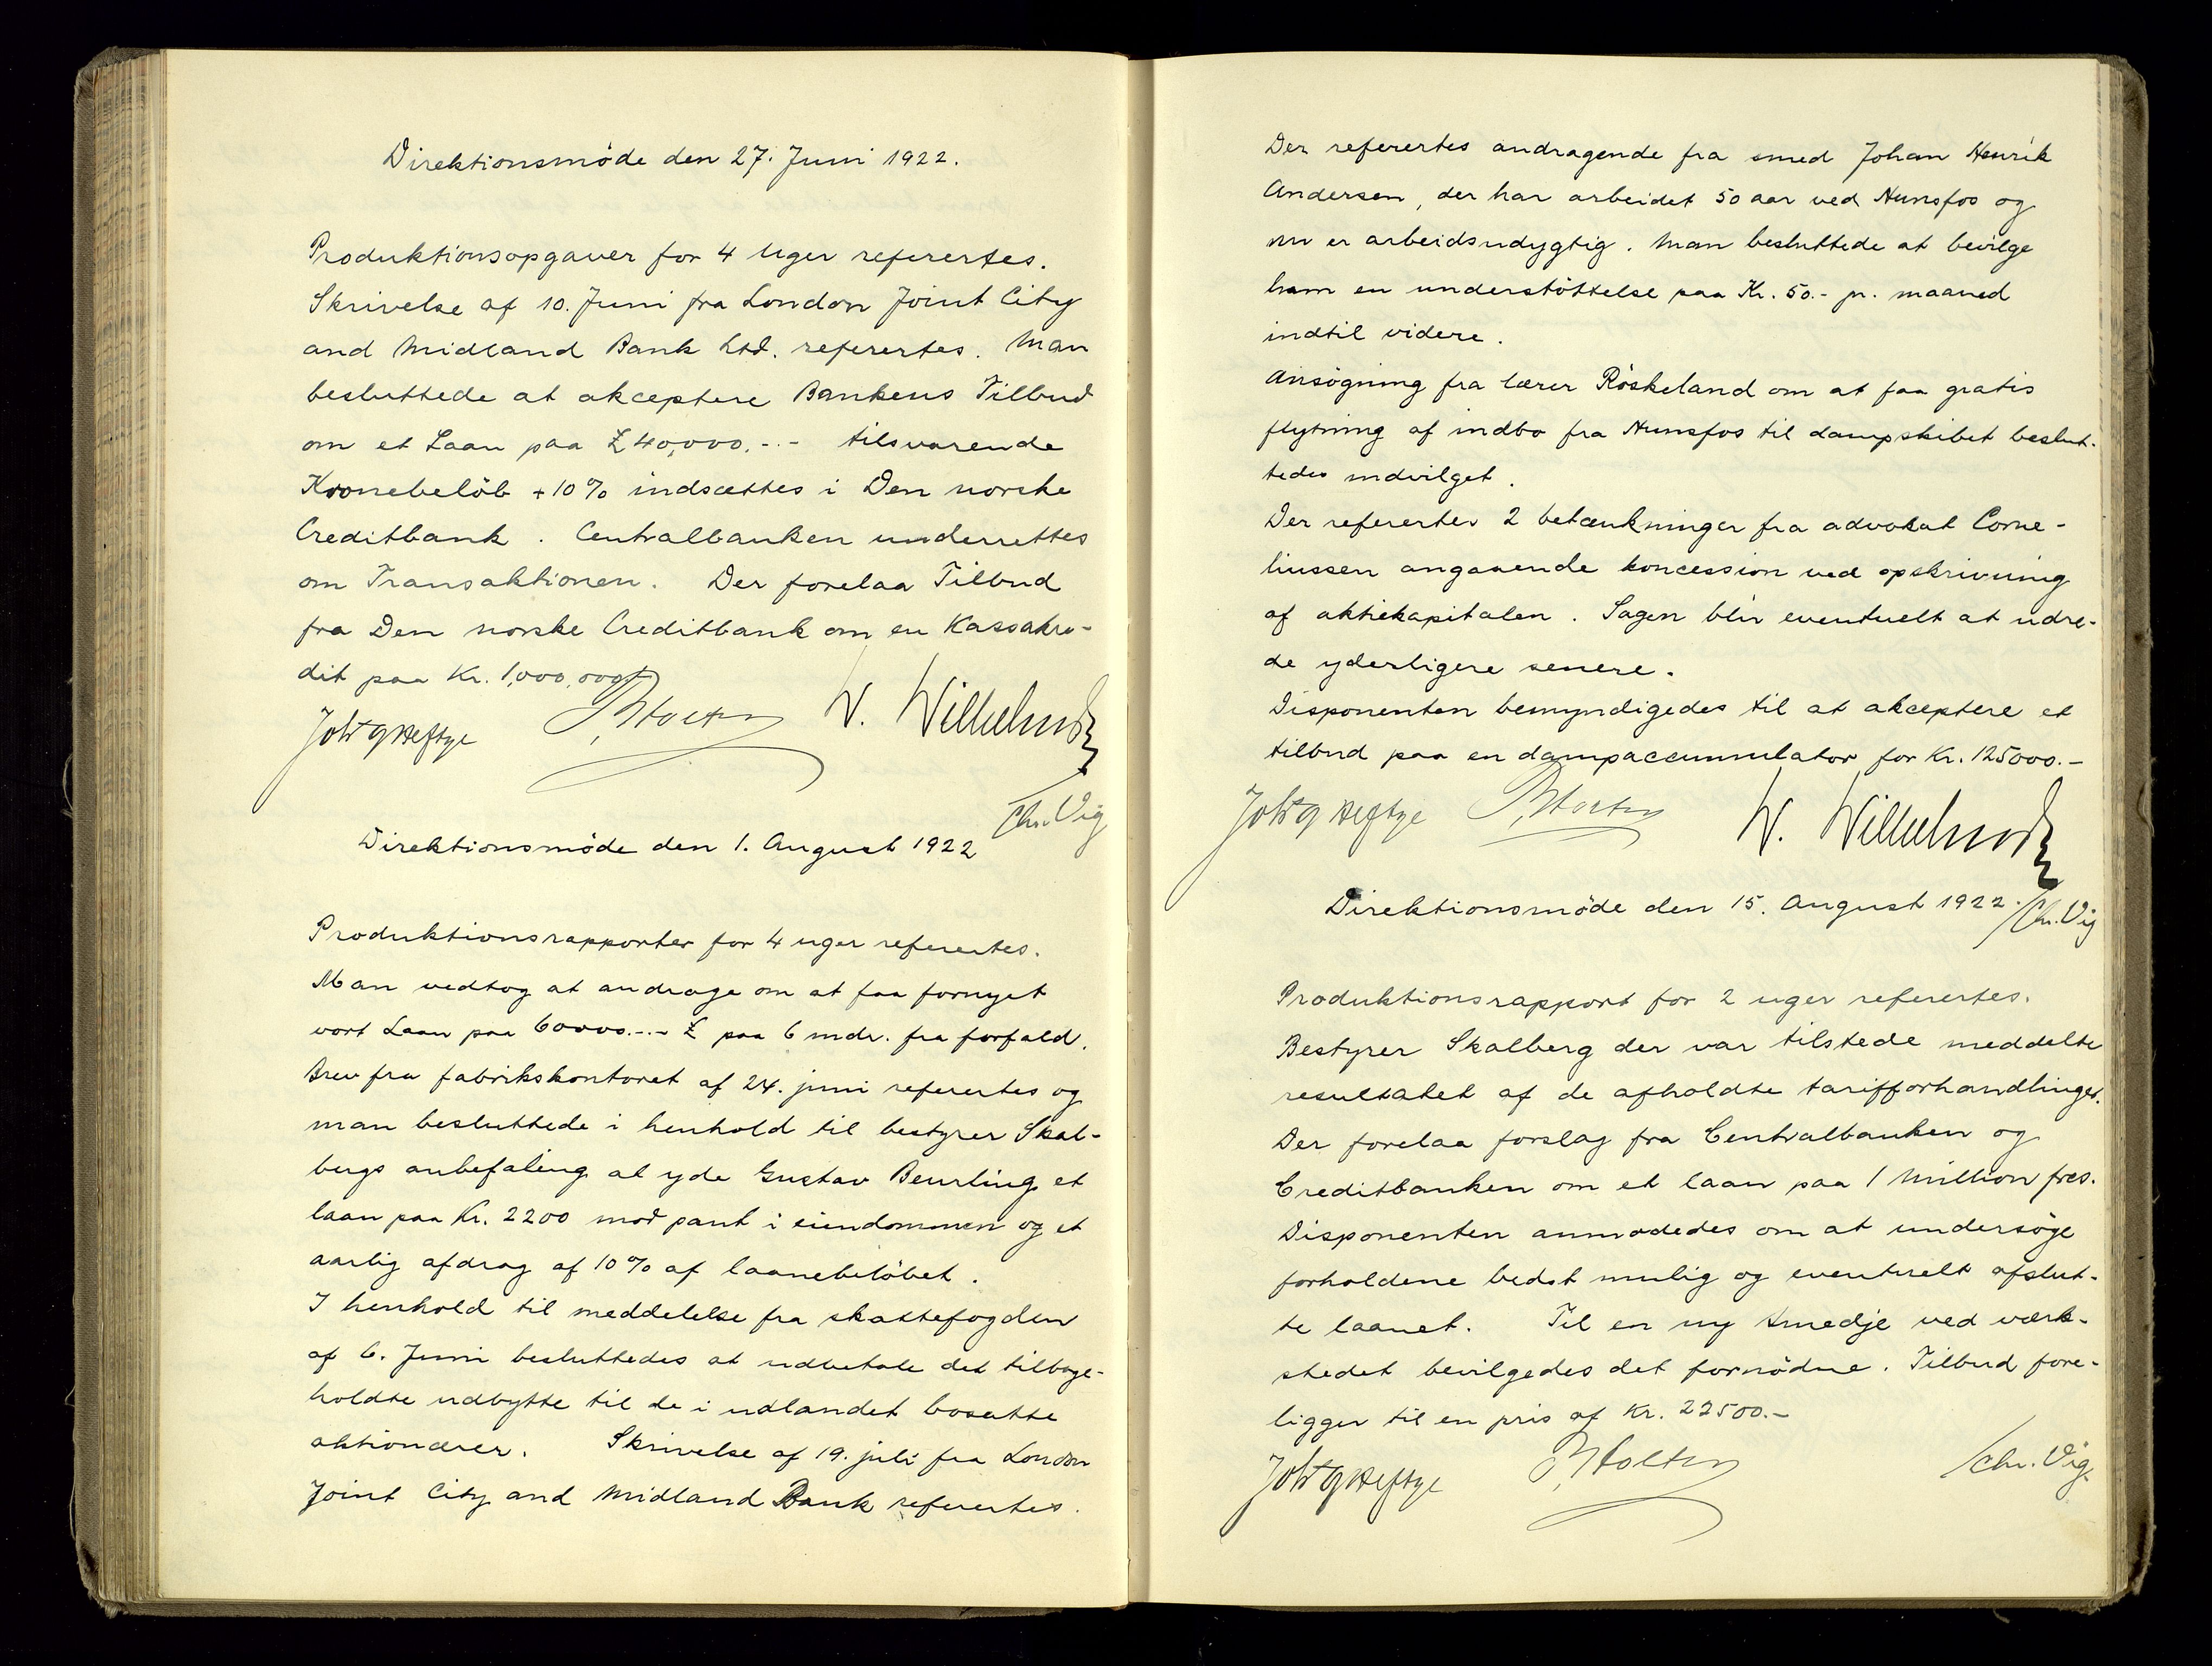 Direktionsmöde den 27. Juni 1922.
Produktionsopgaver for 4 Uger refereres.
Skrivelse af 10. Juni fra London Joint City
and Midland Bank Ltd. referertes. Man
besluttede at akceptere Bankens Tilbud
om et Laan paa £40,000.-.- tilsvarende
Kronebelöb + 10% indsættes i Den norske
Creditbank. Centralbanken underrettes
om Transaktionen. Der forelaa Tilbud
fra Den norske Creditbank om en Kassakre-
dit paa Kr. 1,000,000
Joh. Heftye P. Holter W. Wilhelmsen
Chr. Vig
Direktionsmöde den 1. August 1922
Produktionsrapporter for 4 uger referertes.
Man vedtog at andrage om at faa fornyet
vort Laan paa 60000.-.- £ paa 6 mdr. fra forfald.
Brev fra fabrikskontoret af 24. juni referertes og
man besluttede i henhold til bestyrer Skal-
bergs anbefaling at yde Gustav Beurling et
laan paa Kr. 2200 mod pant i eiendommen og et
aarlig afdrag af 10% af laanebelöbet.
I henhold til meddelelse fra skattefogden
af 6. Juni besluttedes at udbetale det tilbage-
holdte udbytte til de i udlandet bosatte
aktionærer. Skrivelse af 19. juli fra London
Joint City and Midland Bank referertes.
Der referertes andragende fra smed Johan Henrik
Andersen, der har arbeidet 50 aar ved Hunsfos og
nu er arbeidsudygtig. Man besluttede at bevilge
ham en understöttelse paa Kr. 50.- pr. maaned
indtil videre.
Ansögning fra lærer Röskeland om at faa gratis
flytning af indbo fra Hunsfos til dampskibet beslut-
tedes indvilget.
Der referertes 2 betænkninger fra advokat Corne-
liussen angaaende koncession ved opskrivning
af aktiekapitalen. Sagen blir eventuelt at udre-
de yderligere senere.
Disponenten bemyndigedes til at akceptere et
tilbud paa en dampaccumulator for Kr. 125000.-
Joh. Heftye P. Holter W. Wilhelmsen
Direktionsmöde den 15. August 1922. Chr. Vig
Produktionsrapport for 2 uger referertes.
Bestyrer Skalberg der var tilstede meddelte
resultatet af de afholdte tarifforhandlinger.
Der forelaa forslag fra Centralbanken og
Creditbanken om et laan paa 1 Million frcs.
Disponenten anmodedes om at undersöge
forholdene bedst mulig og eventuelt afslut-
te laanet. Til en ny Smedje ved værk-
stedet bevilgedes det fornödne. Tilbud fore-
ligger til en pris af Kr. 22500.-
Joh. Heftye P. Holter Chr. Vig.